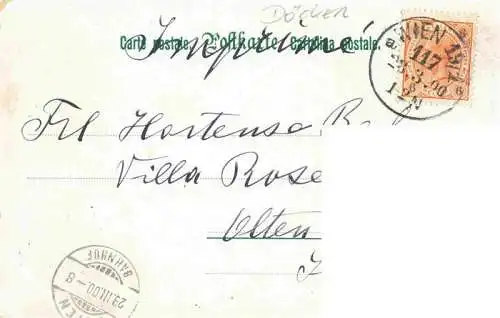 Döcker
Carte postale. Postkarte Cartolina postale.
Imprimé
WIEN 13/1
117
Frl Hortense R.
Villa Rose
Olten
BAHNHOF
29.III.00.-8